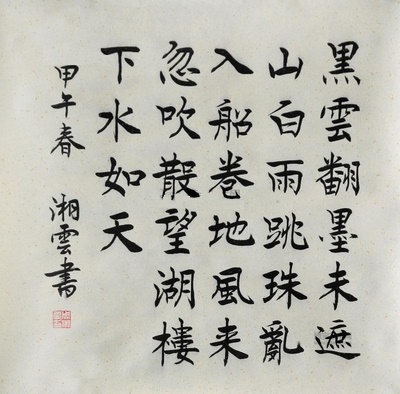 黑雲翻墨未遮
山白雨跳珠亂
入船卷地風来
忽吹散望湖樓
下水如天
甲午春 湘雲書